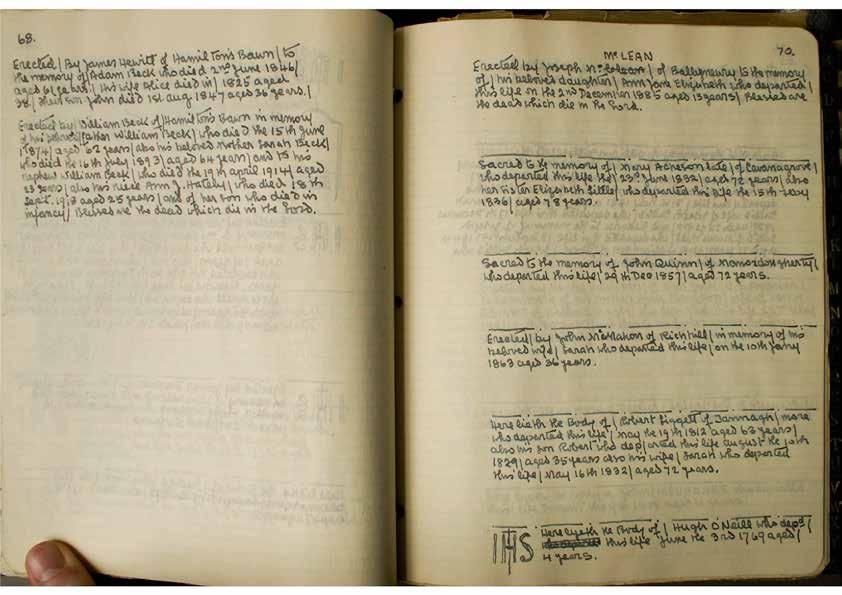 68.
Erected / By James Hewitt of Hamilton's Bawn / to
the memory of Adam Beck who died 2nd June 1846 /
aged 61 years / His wife Alice died in / 1825 aged
38 / Their son John died 1st Aug 1847 aged 36 years. /
Erected by / William Beck / of Hamilton's Bawn in memory
of his beloved father William Beck / who died the 15th June
1874 / aged 62 years / also his beloved mother Sarah Beck /
who died the 16th July 1893 / aged 64 years / and to his
nephew William Beck / who died the 19th April 1914 / aged
years / also his niece Ann J. Hately / who died 18th
Sept. 1913 aged 25 years / and of her son who died in
infancy / Blessed are the dead which die in the Lord.
McLEAN
70.
Erected by Joseph McClean / of Ballynewry to the memory
of / his beloved daughter / Ann Jane Elizabeth who departed /
this life on the 2nd December 1885 aged 13 years / Blessed are
the dead which die in the Lord.
Sacred to the memory of / Mary Acheson late / of Cavanagrove /
who departed this life the / 23rd June 1832 / aged 72 years / also
her sister Elizabeth Little / who departed this life the 15th
1836 / aged 78 years.
Sacred to the memory of John Quinn / of
who departed this life / 29th Dec 1857 / aged 72 years.
Erected / by John McMahon of Richhill / in memory of his
beloved wife / Sarah who departed this life / on the 10th Jany
1863 aged 36 years.
Here lieth the Body of / Robert Liggett of / more
who departed this life / May the 19th 1812 aged 63 years /
also his son Robert who dep / arted this life August the 10th
1829 / aged 35 years also his wife / Sarah who departed
this life / May 16th 1832 / aged 72 years.
IHS
Here lyeth the Body of / Hugh O'Neill who depd /
this life June the 3rd 1769 aged /
4 years.